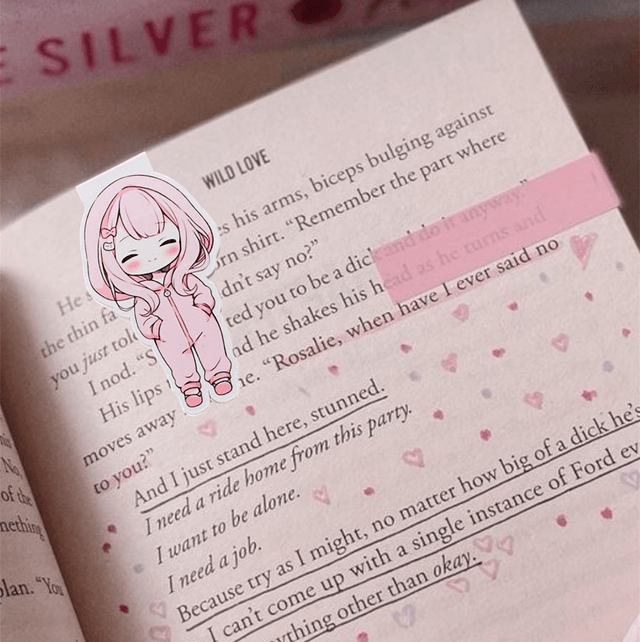 SILVER
WILD LOVE
He his arms, biceps bulging against
the thin shirt. “Remember the part where
you just say no?”
I nod. you to be a dick and do it anyway.”
His lips he shakes his head as he turns and
moves away “Rosalie, when have I ever said no
to you?”
And I just stand here, stunned.
I need a ride home from this party.
I want to be alone.
I need a job.
Because try as I might, no matter how big of a dick he’s
I can’t come up with a single instance of Ford
other than okay.
No,
of the
plan. “You